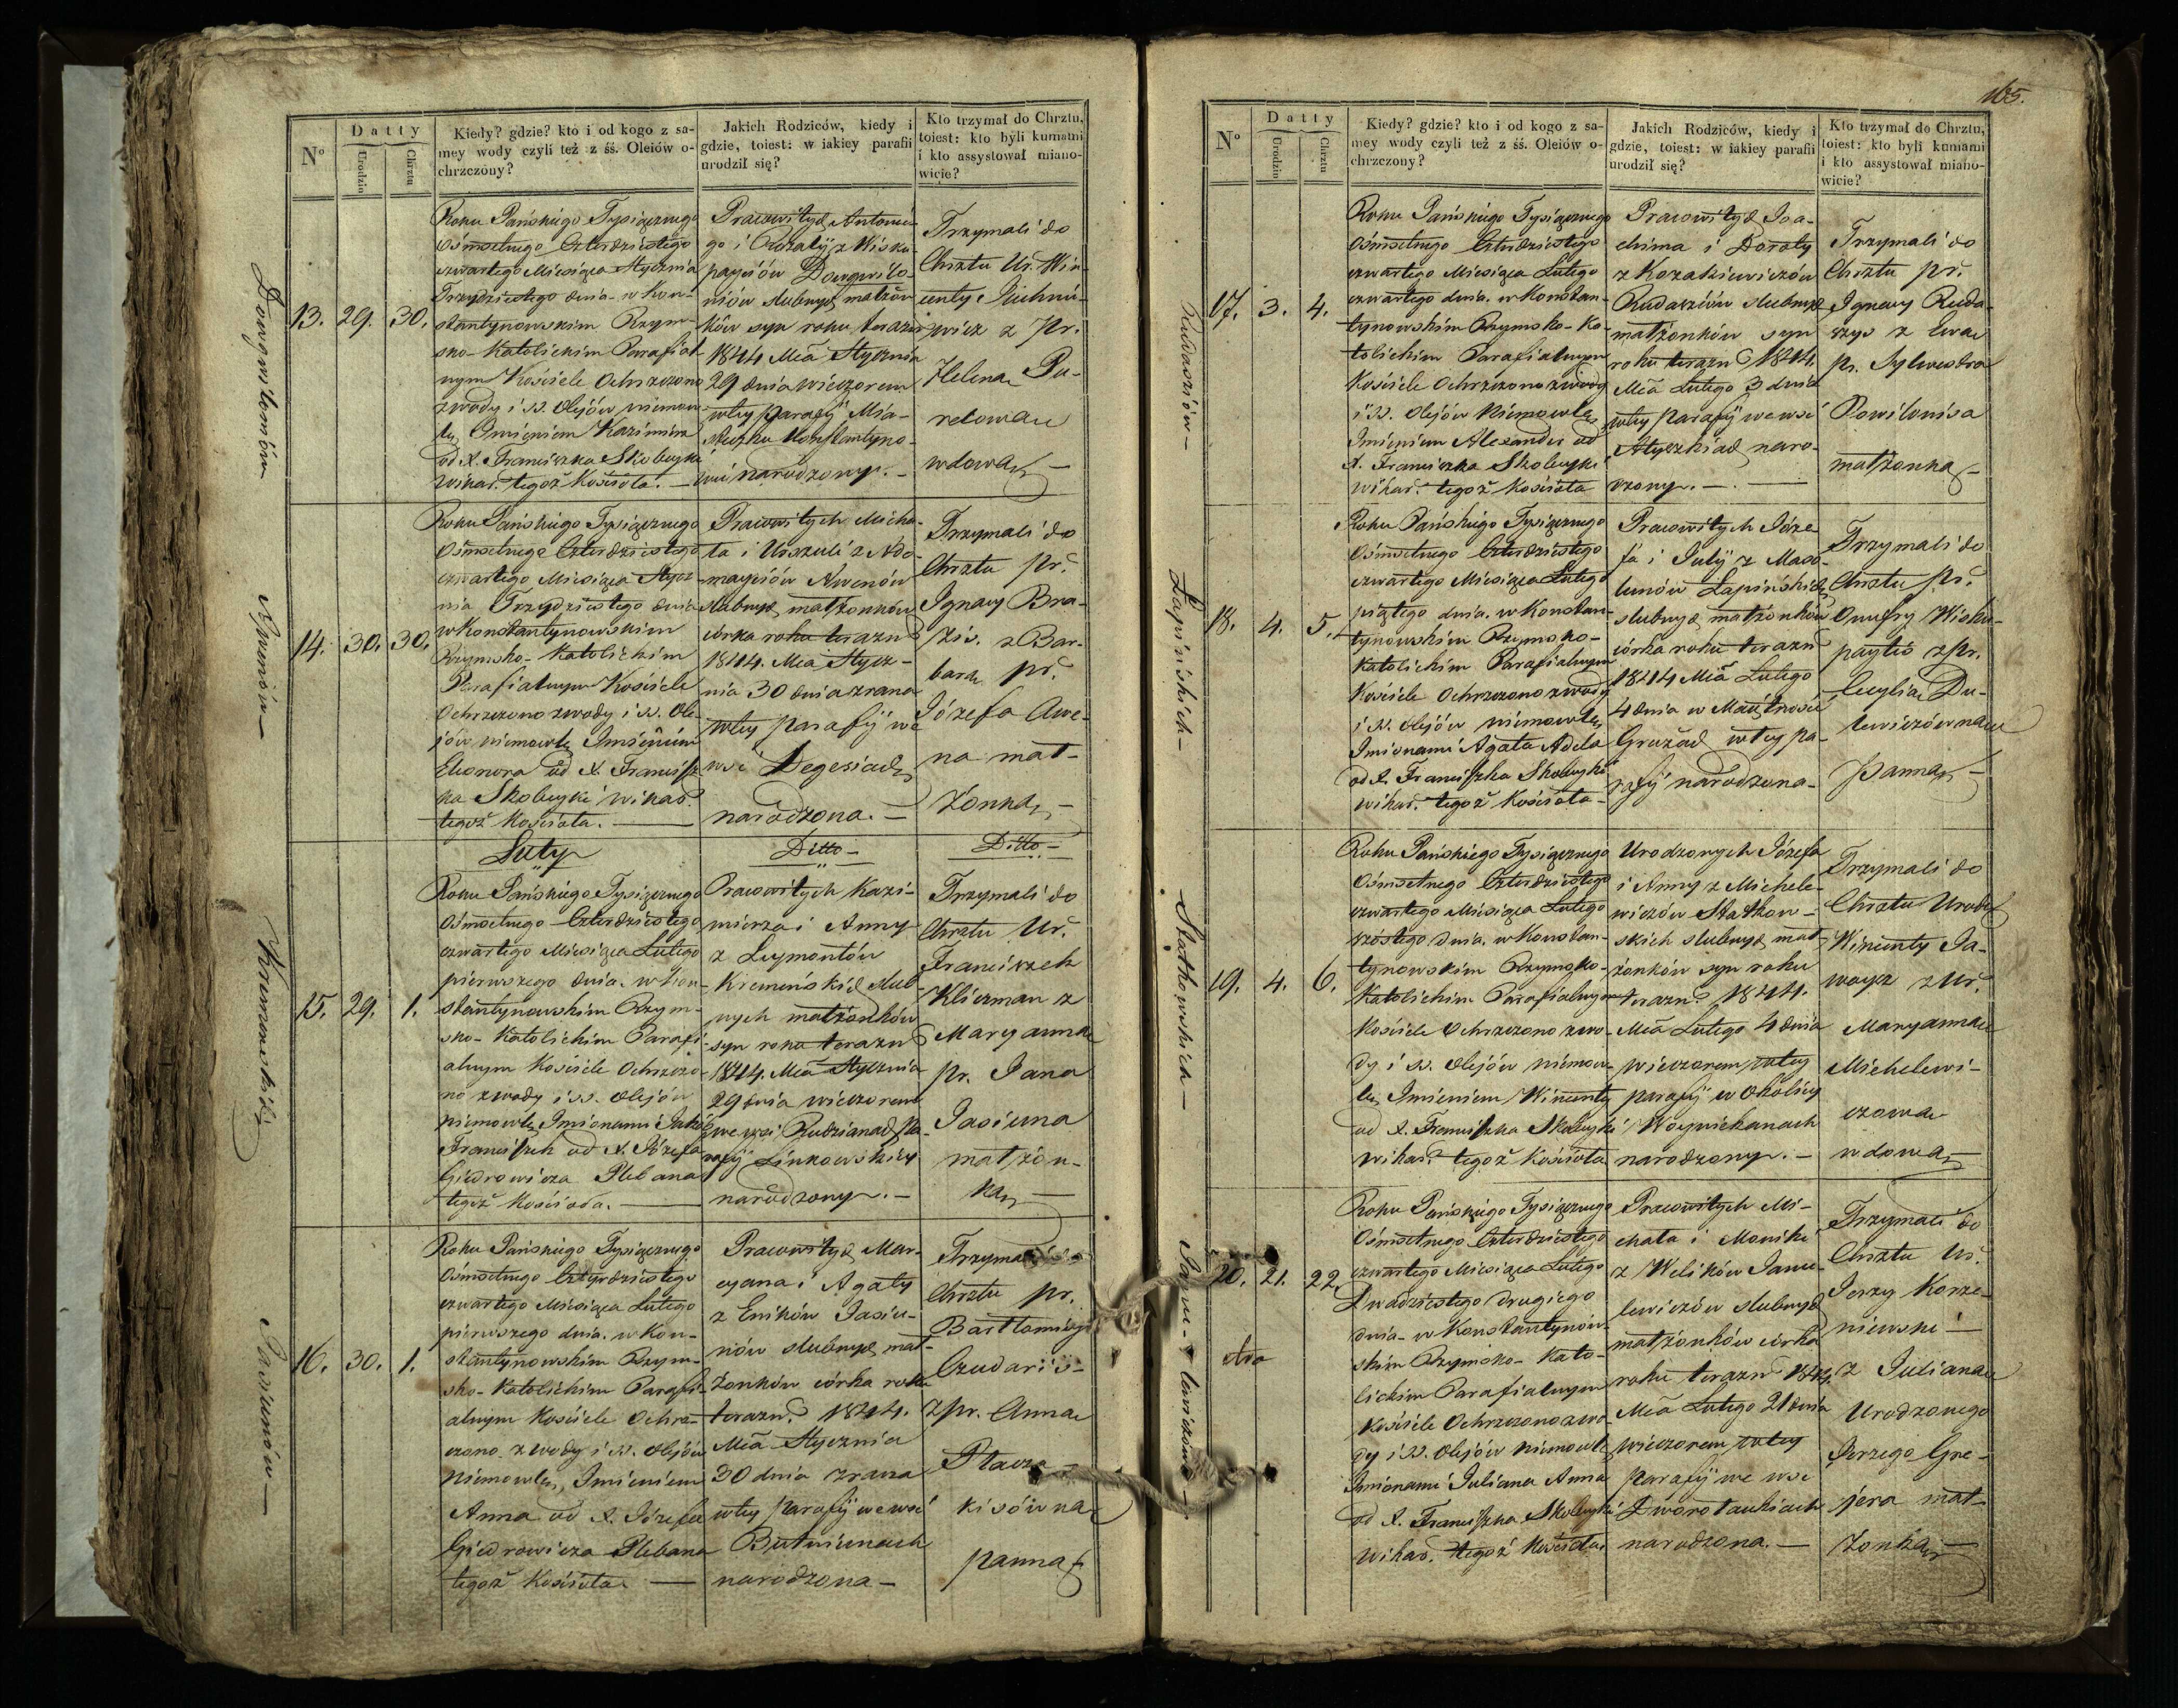 165.
Nº
Datty
Urodzin
Chrztu
Kiedy? gdzie? kto i od kogo z sa-
mey wody czyli też z śś. Oleiów o-
chrzczony?
Jakich Rodziców, kiedy i
gdzie, toiest: w iakiey parafii
urodził się?
Kto trzymał do Chrztu,
toiest: kto byli kumami
i kto assystował miano-
wicie?
13. 29. 30.
Roku Pańskiego Tysiącznego
Ośmsetnego Czterdziestego
czwartego Miesiąca Stycznia
Trzydziestego dnia w Kon-
stantynowskim Rzym-
sko-Katolickim Parafial-
nym Kościele Ochrzczono
z wody i ss. Olejów niemow-
le Imieniem Kazimierz
od X. Franciszka Skobeyki
wikar. tegoż Kościoła. —
Pracowitych Antonie-
go i Rozalij z Wisku-
payciów Dowgwiło-
niów ślubnych małżon-
ków syn roku teraźn
1844 Mca Stycznia
29 dnia wieczorem
w tey parafij Mia-
steczku Konstantyno-
wie narodzony. —
Trzymali do
Chrztu Ur. Win-
centy
z Pr.
Helena
wdowa —
14. 30. 30.
Roku Pańskiego Tysiącznego
Ośmsetnego Czterdziestego
czwartego Miesiąca Stycz-
nia Trzydziestego dnia
w Konstantynowskim
Rzymsko-Katolickim
Parafialnym Kościele
Ochrzczono z wody i ss. Ole-
jów niemowle Imieniem
Eleonora od X. Francisz-
ka Skobeyki wikar.
tegoż Kościoła. —
Pracowitych Micha-
ła i Urszuli z Ado-
mayciów Awenów
ślubnych małżonków
córka roku teraźn
1844. Mca Stycz-
nia 30 dnia z rana
w tey parafij we
wsi Degesiach
narodzona. —
Trzymali do
Chrztu Pr.
Ignacy Bra-
zis. z Bar-
barą pr.
Józefa Awe-
na mał-
żonką —
Luty
Ditto —
Ditto —
15. 29. 1.
Roku Pańskiego Tysiącznego
Ośmsetnego Czterdziestego
czwartego Miesiąca Lutego
pierwszego dnia. w Kon-
stantynowskim Rzym-
sko-Katolickim Parafi-
alnym Kościele Ochrzczo-
no z wody i ss. Olejów
niemowle Imionami Jakób
Franciszek od X. Józefa
Giedrowicza Plebana
tegoż Kościoła. —
Pracowitych Kazi-
mierza i Anny
z Leymontów
Kremeńskich ślub-
nych małżonków
syn roku teraźn
1844. Mca Stycznia
29 dnia wieczorem
we wsi Rudzianach pa-
rafij Łinkowskiey
narodzony. —
Trzymali do
Chrztu Ur.
Franciszek
Kliczman z
Maryanną
pr. Jana
Jasiuna
małżon-
ką —
16. 30. 1.
Roku Pańskiego Tysiącznego
Ośmsetnego Czterdziestego
czwartego Miesiąca Lutego
pierwszego dnia. w Kon-
stantynowskim Rzym-
sko-Katolickim Parafi-
alnym Kościele Ochrz-
czono z wody i ss. Olejów
niemowle, Imieniem
Anna od X. Józefa
Giedrowicza Plebana
tegoż Kościoła —
Pracowitych Mar-
cyana i Agaty
z Eników Jasiu-
nów ślubnych mał-
żonków córka roku
teraźn. 1844.
Mca Stycznia
30 dnia z rana
w tey parafij we wsi
Butwiunach
narodzona —
Trzymali do
Chrztu pr.
Bartłomiej
Czudaris
z pr. Anną
kisówną
panną
17. 3. 4.
Roku Pańskiego Tysiącznego
Ośmsetnego Czterdziestego
czwartego Miesiąca Lutego
czwartego dnia. w Konstan-
tynowskim Rzymsko-Ka-
tolickim Parafialnym
Kościele Ochrzczono z wody
i ss. Olejów Niemowle
Imieniem Alexander od
X. Franciszka Skobeyki
wikar. tegoż Kościoła
Pracowitych Joa-
chima i Doroty
z Kozakiewiczów
Rudaszów ślubnych
małżonków syn
roku teraźn 1844.
Mca Lutego 3 dnia
w tey parafij we wsi
naro-
dzony. —
Trzymali do
Chrztu pr.
Ignacy Ruda-
szys z Ewą
pr. Sylwestra
Powiłonisa
małżonką —
18. 4. 5.
Roku Pańskiego Tysiącznego
Ośmsetnego Czterdziestego
czwartego Miesiąca Lutego
piątego dnia. w Konstan-
tynowskim Rzymsko-
Katolickim Parafialnym
Kościele Ochrzczono z wody
i ss. Olejów niemowle
Imionami Agata Adela
od X. Franciszka Skobeyki
wikar. tegoż Kościoła —
Pracowitych Józe-
fa i Julij z Maso-
Łapińskich
ślubnych małżonków
córka roku teraźn
1844 Mca Lutego
4 dnia w Maiętności
Grużach w tey pa-
rafij narodzona —
Trzymali do
Chrztu Pr.
Onufry Wisku-
paytis z Pr.
Cecylią Du-
lewiczówną
panną —
19. 4. 6.
Roku Pańskiego Tysiącznego
Ośmsetnego Czterdziestego
czwartego Miesiąca Lutego
szóstego dnia. w Konstan-
tynowskim Rzymsko-
Katolickim Parafialnym
Kościele Ochrzczono z wo-
dy i ss. Olejów niemow-
le Imieniem Wincenty
od X. Franciszka Skobeyki
wikar. tegoż Kościoła
Urodzonych Józefa
i Anny z Michele-
wiczów Statkow-
skich ślubnych mał-
żonków syn roku
teraźn. 1844.
Mca Lutego 4 dnia
wieczorem w tey
parafij w Okolicy
Woyniekanach
narodzony. —
Trzymali do
Chrztu Urodz
Wincenty Ja-
woysz z Ur.
Maryanną
Michelewi-
czową
wdową —
20. 21. 22.
Roku Pańskiego Tysiącznego
Ośmsetnego Czterdziestego
czwartego Miesiąca Lutego
Dwadziestego drugiego
dnia w Konstantynow-
skim Rzymsko-Kato-
lickim Parafialnym
Kościele Ochrzczono z wo-
dy i ss. Olejów niemowle
Imionami Juliana Anna
od X. Franciszka Skobeyki
Wikar. tegoż Kościoła
Pracowitych Mi-
chała i Moniki
z Welików Janu-
lewiczów ślubnych
małżonków córka
roku teraźn 1844.
Mca Lutego 21 dnia
wieczorem w tey
parafij we wsi
Dworotaukiach
narodzona. —
Trzymali do
Chrztu Ur.
Jerzy Korze-
niewski —
z Julianą
Urodzonego
Jerzego Gre-
jera mał-
żonką —
Dowgwiłoniów —
Awenów —
Kremeńskich
Jasiunów —
Rudaszów —
Łapińskich —
Statkowskich —
Janu-lewiczów —